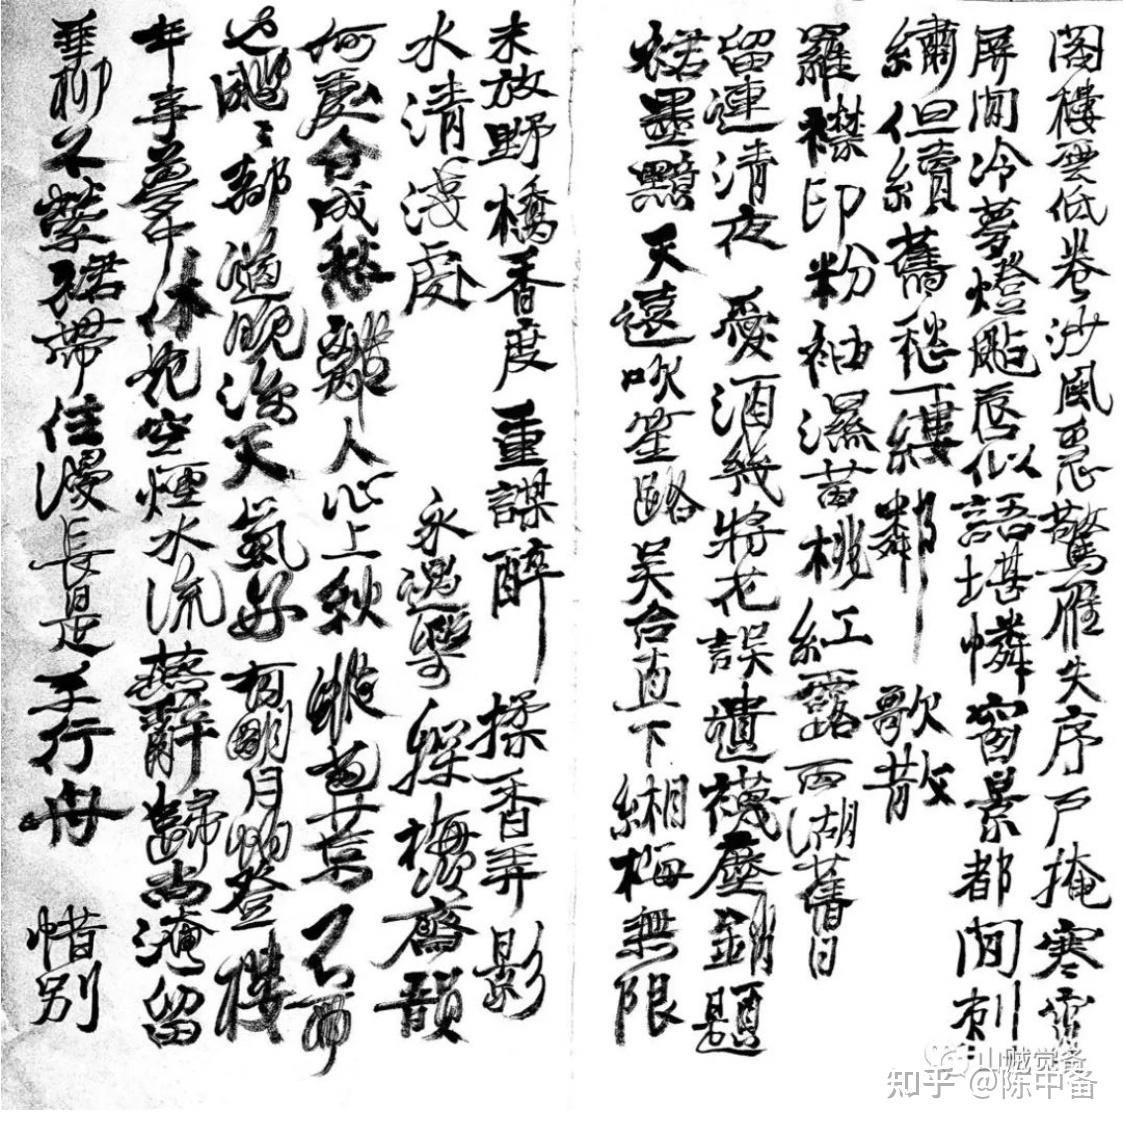 閣樓雲低卷沙風惡驚雁失序戶掩寒宵
屏間冷夢燈颭唇似語堪憐窗景都閒刺
繡但續舊愁一縷鄰歌散
羅襟印粉袖濕茜桃紅露西湖舊日
留連清夜愛酒幾將花誤遺襪塵銷題
裙墨黯天遠吹笙路吳台直下緗梅無限
未放野橋香度重謀醉揉香弄影
水清淺處 永遇樂 探梅次齋韻
何處合成愁離人心上秋縱芭蕉不雨
也颼〻都道晚涼天氣好有明月怕登樓
年事夢中休花空煙水流燕辭歸尚淹留
垂柳不縈裙帶住漫長是系行舟 惜別
山贼觉备
知乎 @陈中备